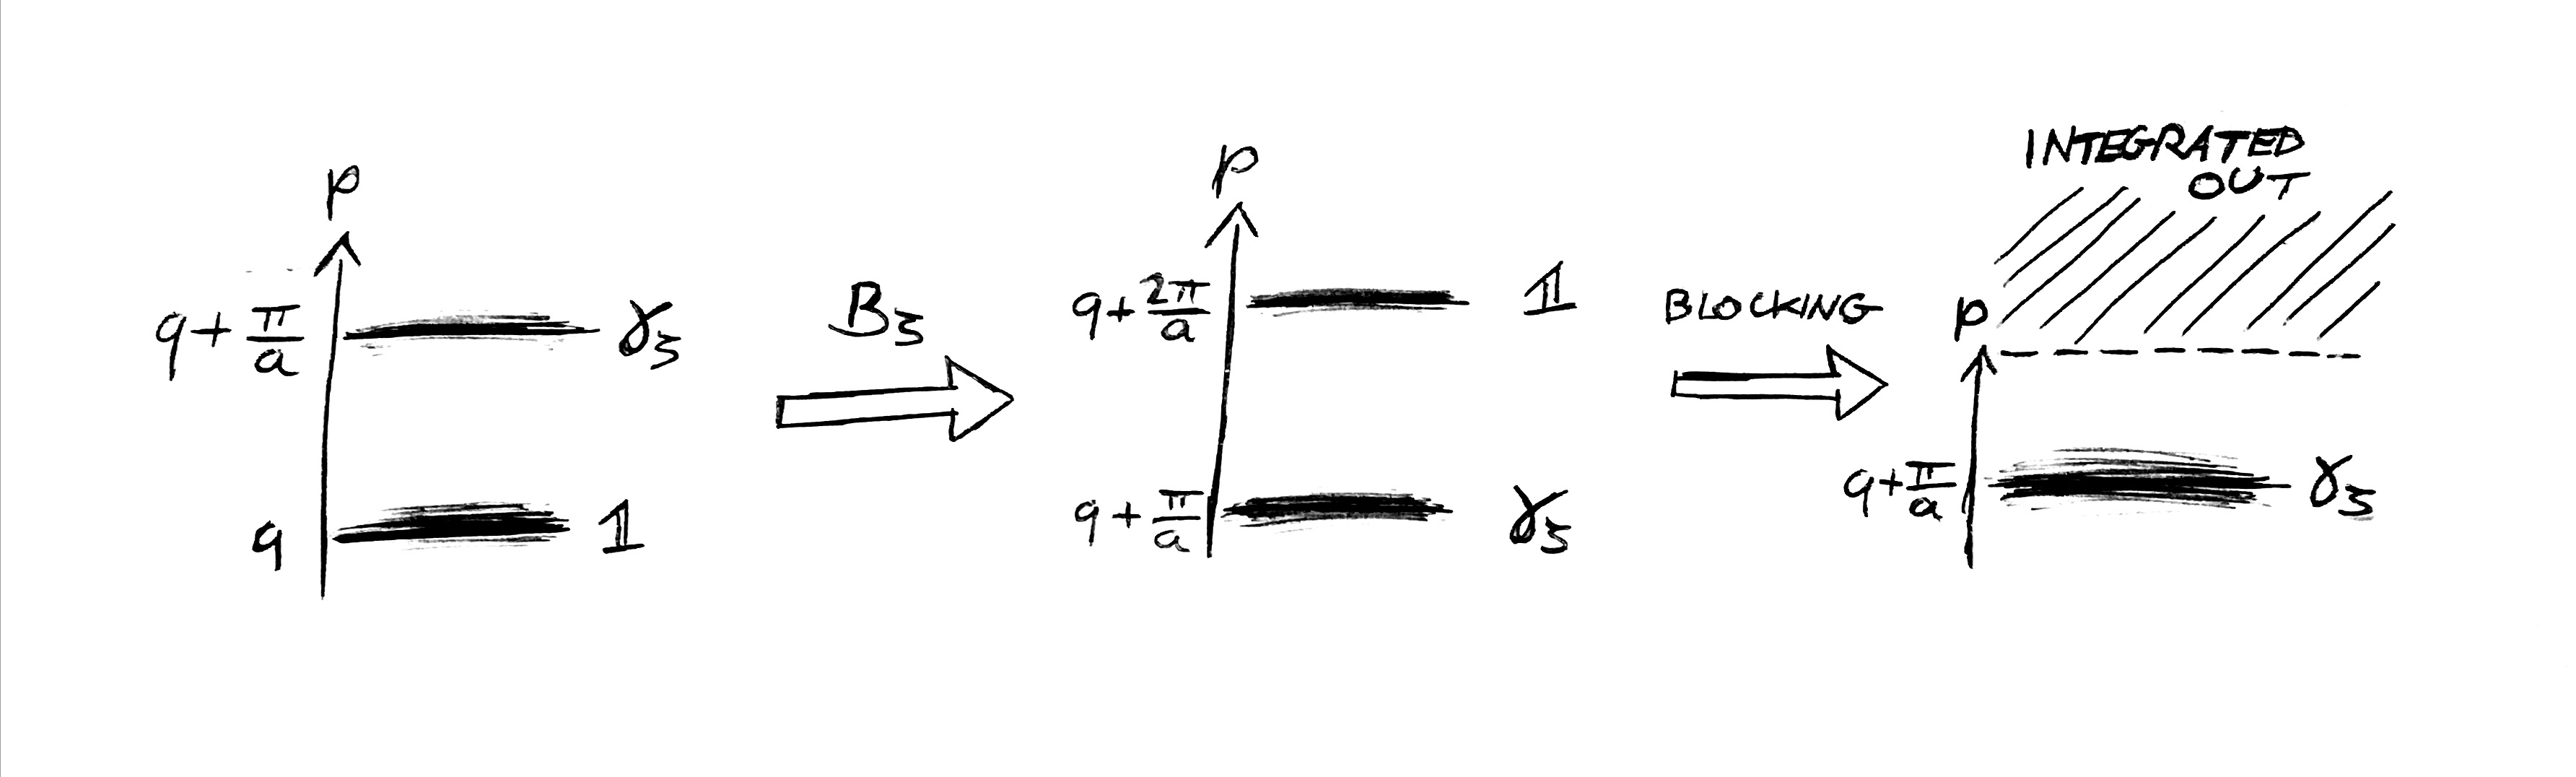 p
q + π/a
γ_ξ
q
𝟙
B_ξ
p
q + 2π/a
𝟙
q + π/a
γ_ξ
BLOCKING
INTEGRATED
OUT
p
q + π/a
γ_ξ